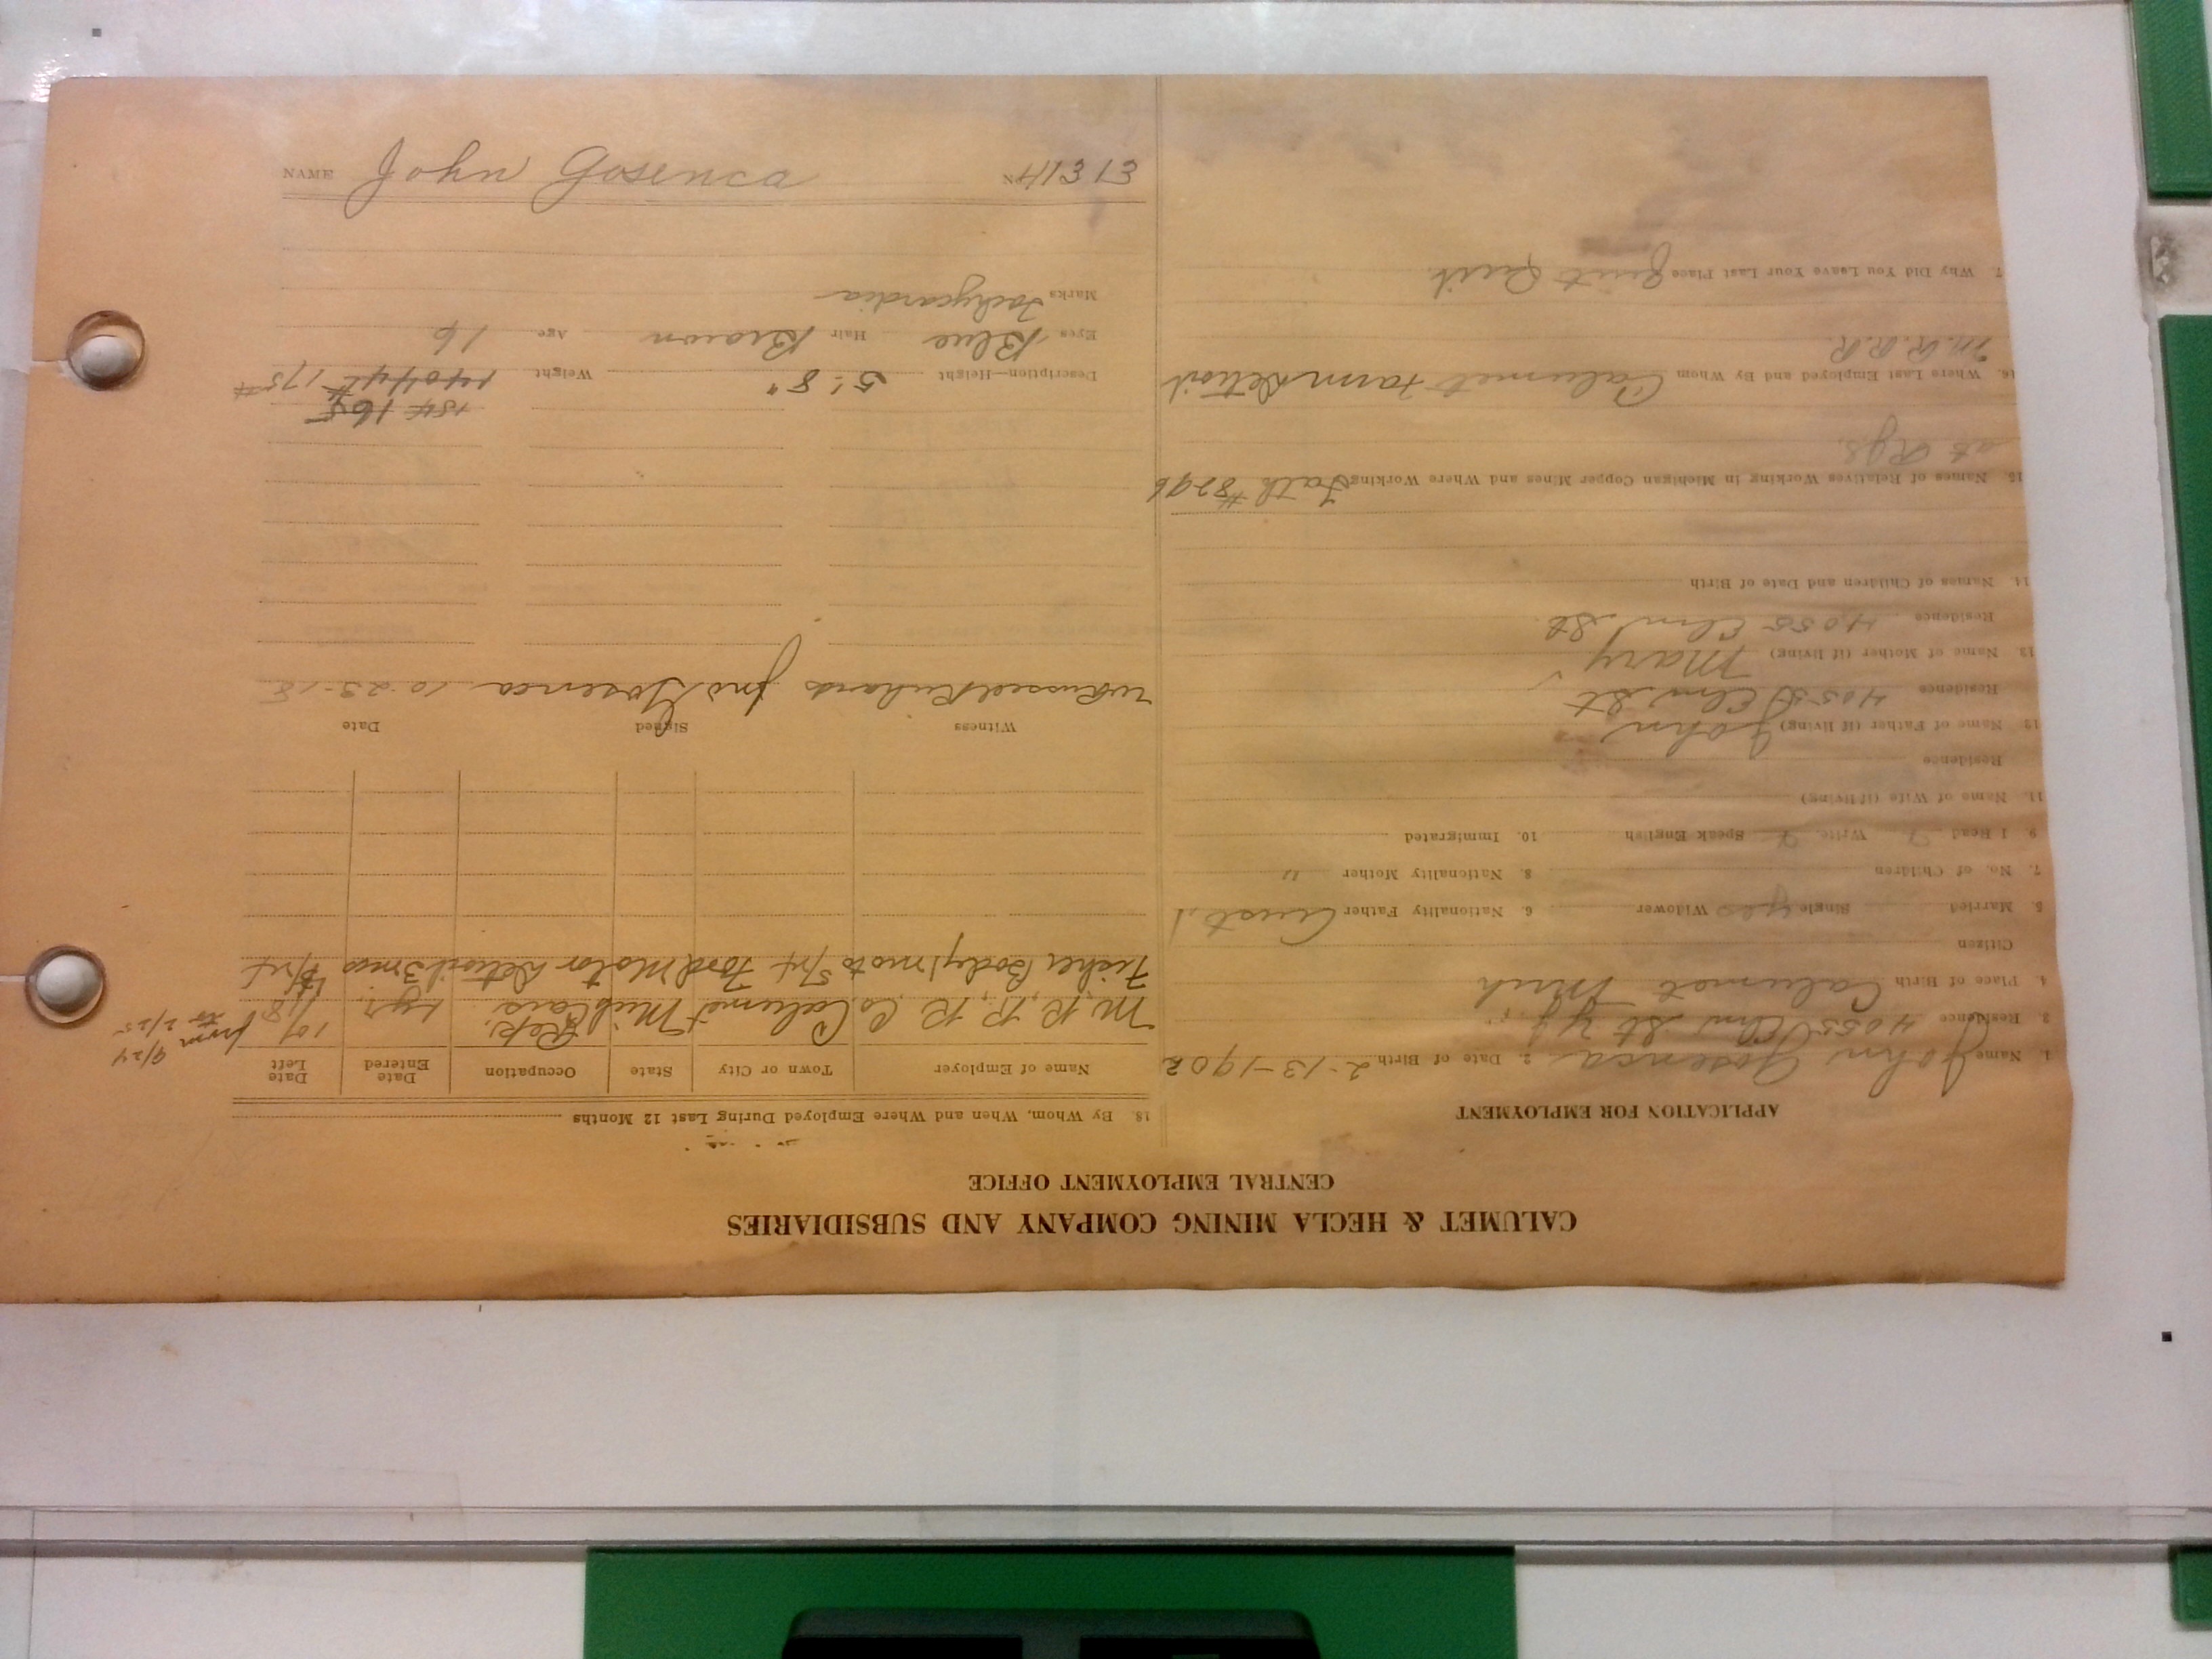 CALUMET & HECLA MINING COMPANY AND SUBSIDIARIES
CENTRAL EMPLOYMENT OFFICE
APPLICATION FOR EMPLOYMENT
1. Name John Gosenca 2. Date of Birth 2-13-1902
3. Residence 4055 Elm St
4. Place of Birth Calumet Mich
Citizen
5. Married Single yes Widower 6. Nationality Father Aust.
7. No. of Children 8. Nationality Mother "
9. I Read Write Speak English 10. Immigrated
11. Name of Wife (if living)
Residence
12. Name of Father (if living) John
Residence 4055 Elm St
13. Name of Mother (if living) Mary
Residence 4055 Elm St.
14. Names of Children and Date of Birth
15. Names of Relatives Working in Michigan Copper Mines and Where Working Fath #8296
at
16. Where Last Employed and By Whom Calumet Detroit
M.R.R.R.
17. Why Did You Leave Your Last Place Quit Quit
18. By Whom, When and Where Employed During Last 12 Months
Name of Employer Town or City State Occupation Date Entered Date Left
M. R. R. R. Co. Calumet Mich Rep. Cars 1 yr. 10/18
from 9/24 to 2/25
Fisher Body 1 mo to Ford Motor Detroit 3 mos
Witness Signed Date
W Russell Richards Jno Gosenca 10-23-18
154 165
Description—Height 5' 8" Weight 140 144# 175#
Eyes Blue Hair Brown Age 16
Marks Tachycardia
NAME John Gosenca No. 41313